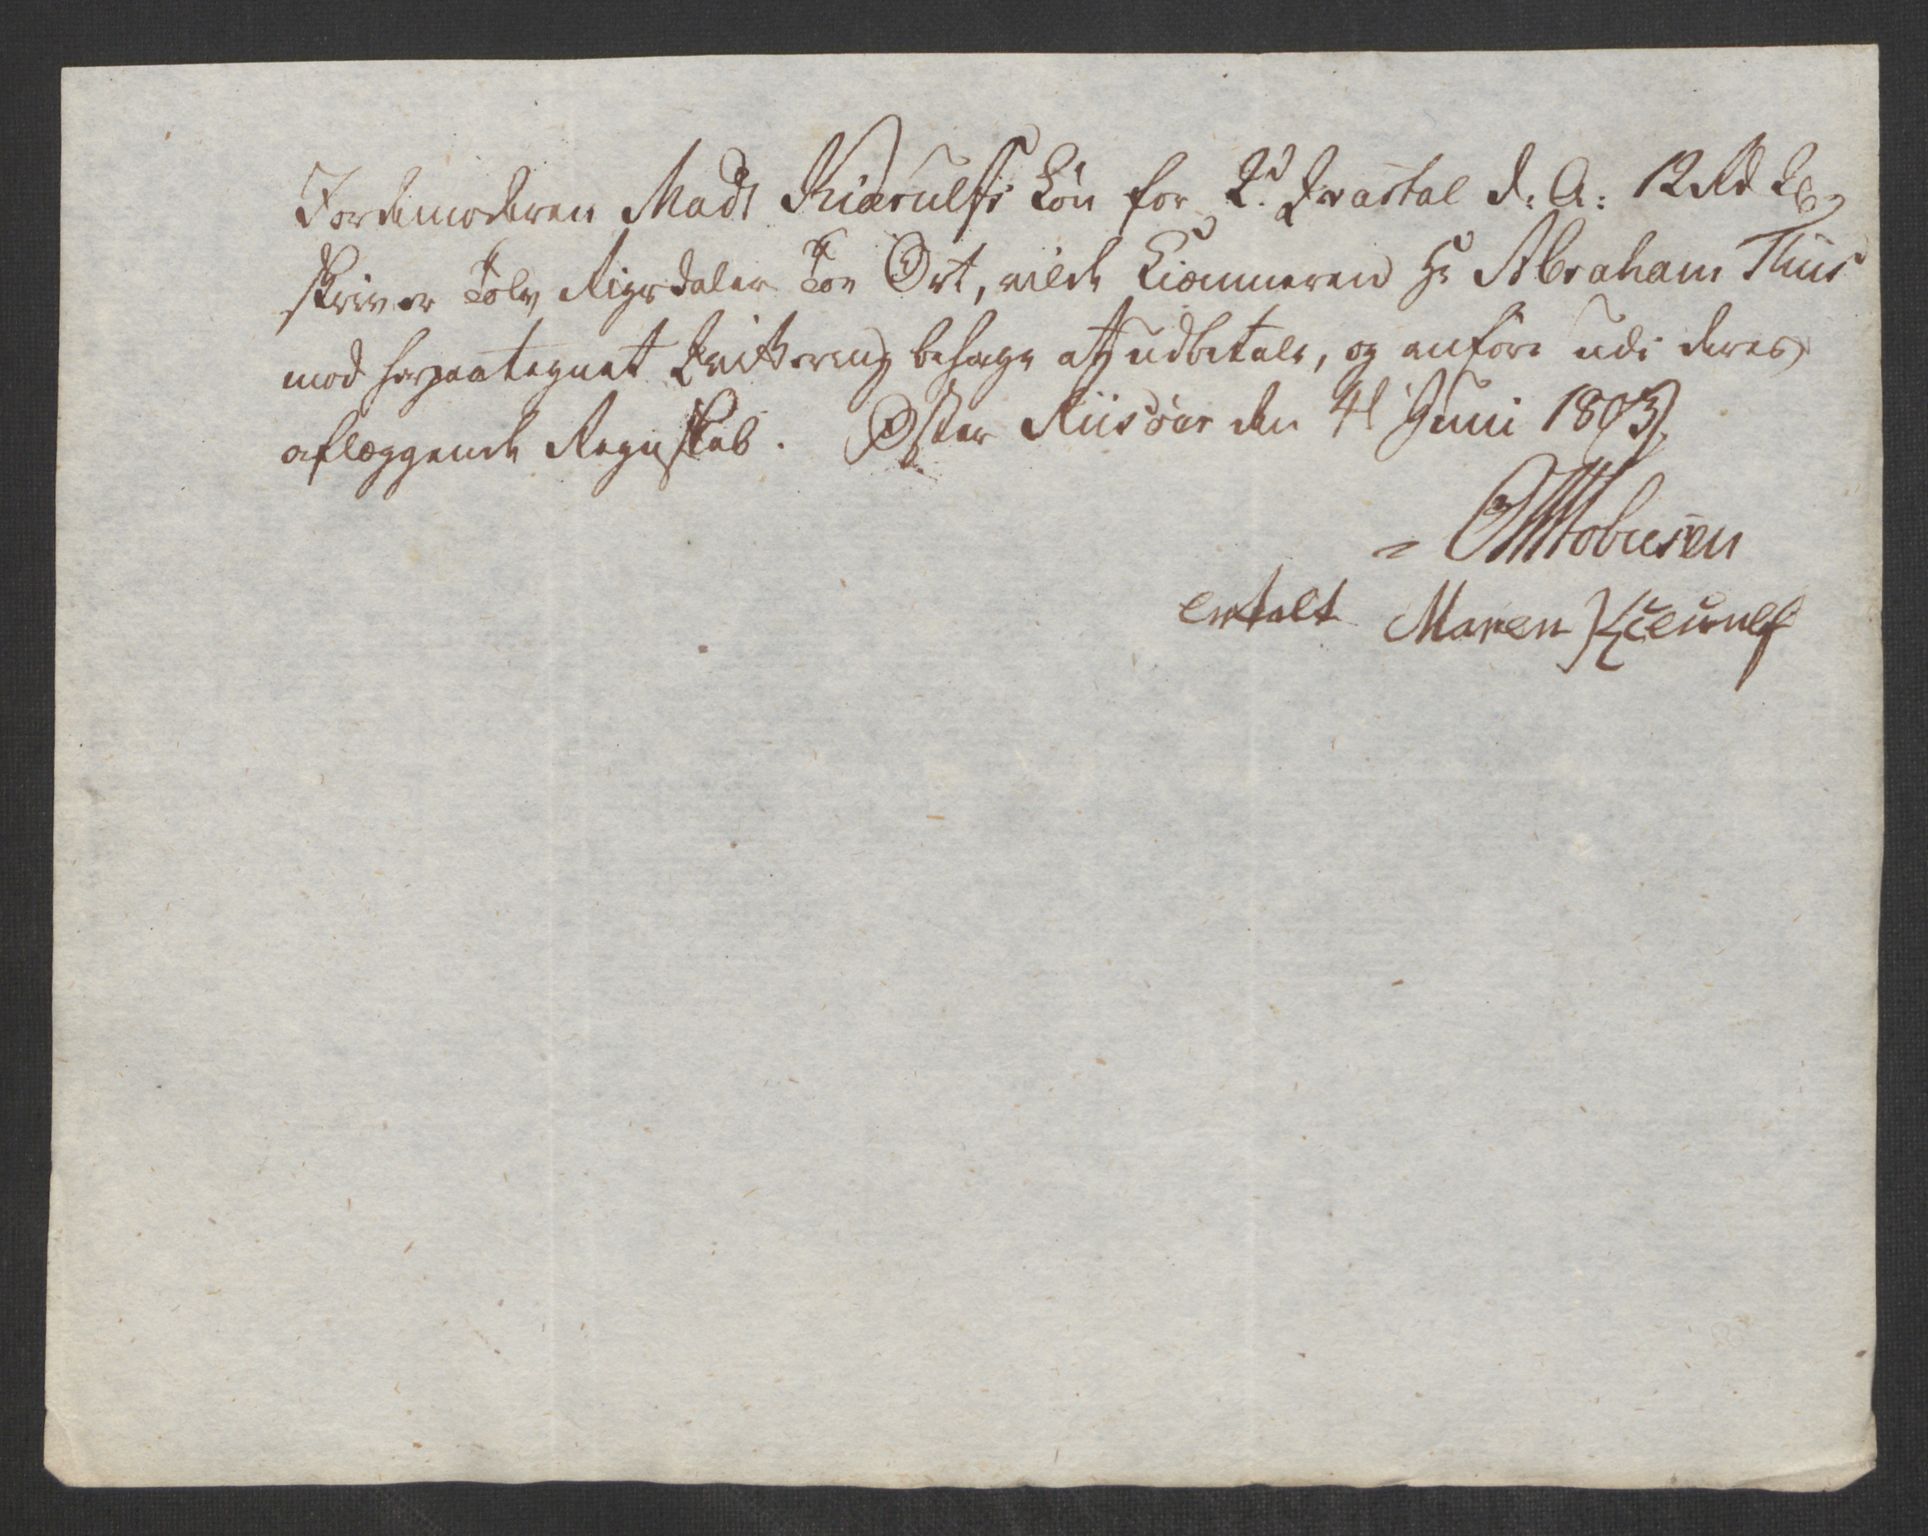 Jordemoderen Mads Kiærulfs Løn for 2d Qvartal d: A: 12 Rd 2
skriver Tolv Rigsdaler Toe Ort, vilde Kiæmneren Hr Abraham Thiis
mod herpaategnet Qvittering behage at udbetale, og anføre udi deres
aflæggende Regnskab. Øster Riisøer den 4 Juni 1803
Tobiesen
Maren Kierulf